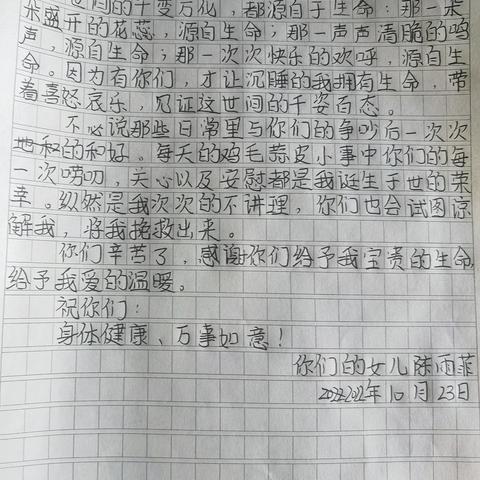 世间的千变万化，都源自于生命：那一朵
朵盛开的花蕊，源自生命；那一声声清脆的鸣
声，源自生命；那一次次快乐的欢呼，源自生
命。因为有你们，才让沉睡的我拥有生命，带
着喜怒哀乐，见证这世间的千姿百态。
不必说那些日常里与你们的争吵后一次次
地和的和好。每天的鸡毛蒜皮小事中你们的每
一次唠叨，关心以及安慰都是我诞生于世的荣
幸。纵然是我次次的不讲理，你们也会试图谅
解我，将我挽救出来。
你们辛苦了，感谢你们给予我宝贵的生命，
给予我爱的温暖。
祝你们：
身体健康、万事如意！
你们的女儿陈雨菲
2022年10月23日